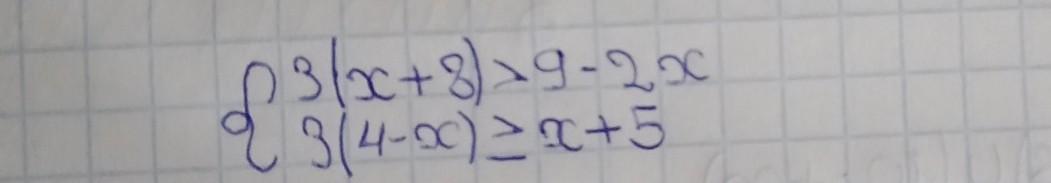 { 3(x+8)>9-2x
3(4-x)≥x+5